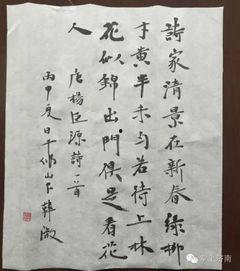 詩家清景在新春綠柳
才黄半未匀若待上林
花似錦出門俱是看花
人
唐楊巨源詩一首
丙申夏日千佛山下韓